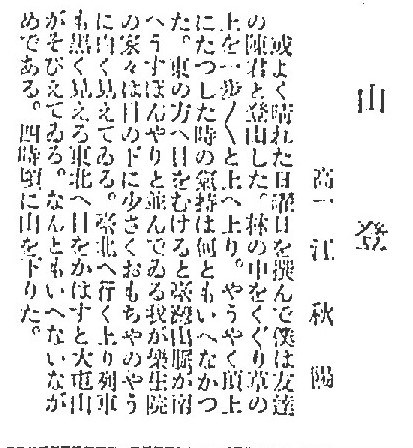 山登
高一 江秋陽
或よく晴れた日曜日を撰んで僕は友達
の陳君と登山した。林の中をくぐり草の
上を一歩〱と上へ上り。やうやく頂上
にたつした時の氣持は何ともいへなかつ
た。東の方へ目をむけると臺灣山脈が南
へうすぼんやりと並んでゐる我が樂生院
の家々は目の下に小さくおもちやのやう
に白く見えてゐる。臺北へ行く上り列車
も黒く見えろ東北へ目をかはすと大屯山
がそびえてゐる。なんともいへないなが
めである。四時頃に山を下りた。